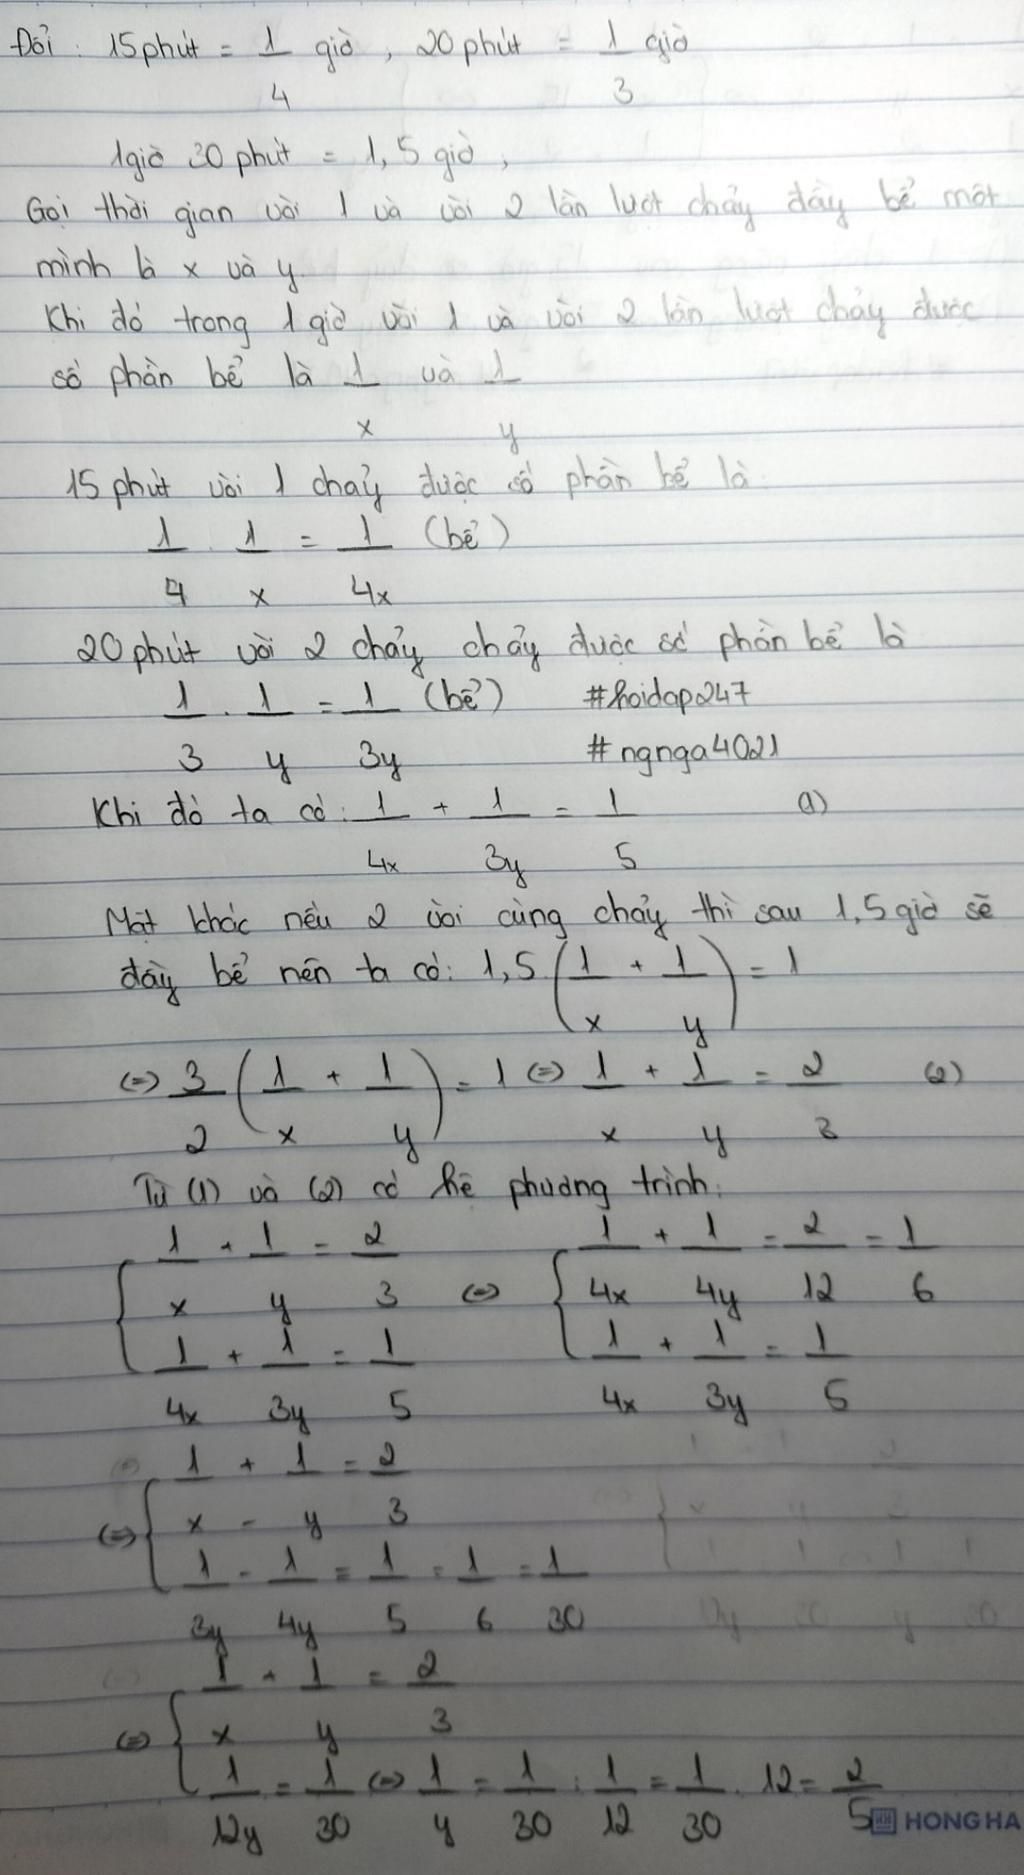 Đổi: 15 phút = 1/4 giờ, 20 phút = 1/3 giờ
1giờ 30 phút = 1,5 giờ,
Gọi thời gian vòi 1 và vòi 2 lần lượt chảy đầy bể một
mình là x và y.
Khi đó trong 1 giờ vòi 1 và vòi 2 lần lượt chảy được
số phần bể là 1/x và 1/y
15 phút vòi 1 chảy được số phần bể là:
1/4 . 1/x = 1/4x (bể)
20 phút vòi 2 chảy chảy được số phần bể là
1/3 . 1/y = 1/3y (bể) #hoidap247
#ngnga4021
Khi đó ta có: 1/4x + 1/3y = 1/5 (1)
Mặt khác nếu 2 vòi cùng chảy thì sau 1,5 giờ sẽ
đầy bể nên ta có: 1,5 (1/x + 1/y) = 1
<=> 3/2 (1/x + 1/y) = 1 <=> 1/x + 1/y = 2/3 (2)
Từ (1) và (2) có hệ phương trình:
{ 1/x + 1/y = 2/3 <=> { 1/4x + 1/4y = 2/12 = 1/6
1/4x + 1/3y = 1/5 1/4x + 1/3y = 1/5
<=> { 1/x + 1/y = 2/3
1/3y - 1/4y = 1/5 - 1/6 = 1/30
<=> { 1/x + 1/y = 2/3
1/12y = 1/30 <=> 1/y = 1/30 : 1/12 = 1/30 . 12 = 2/5
HONG HA